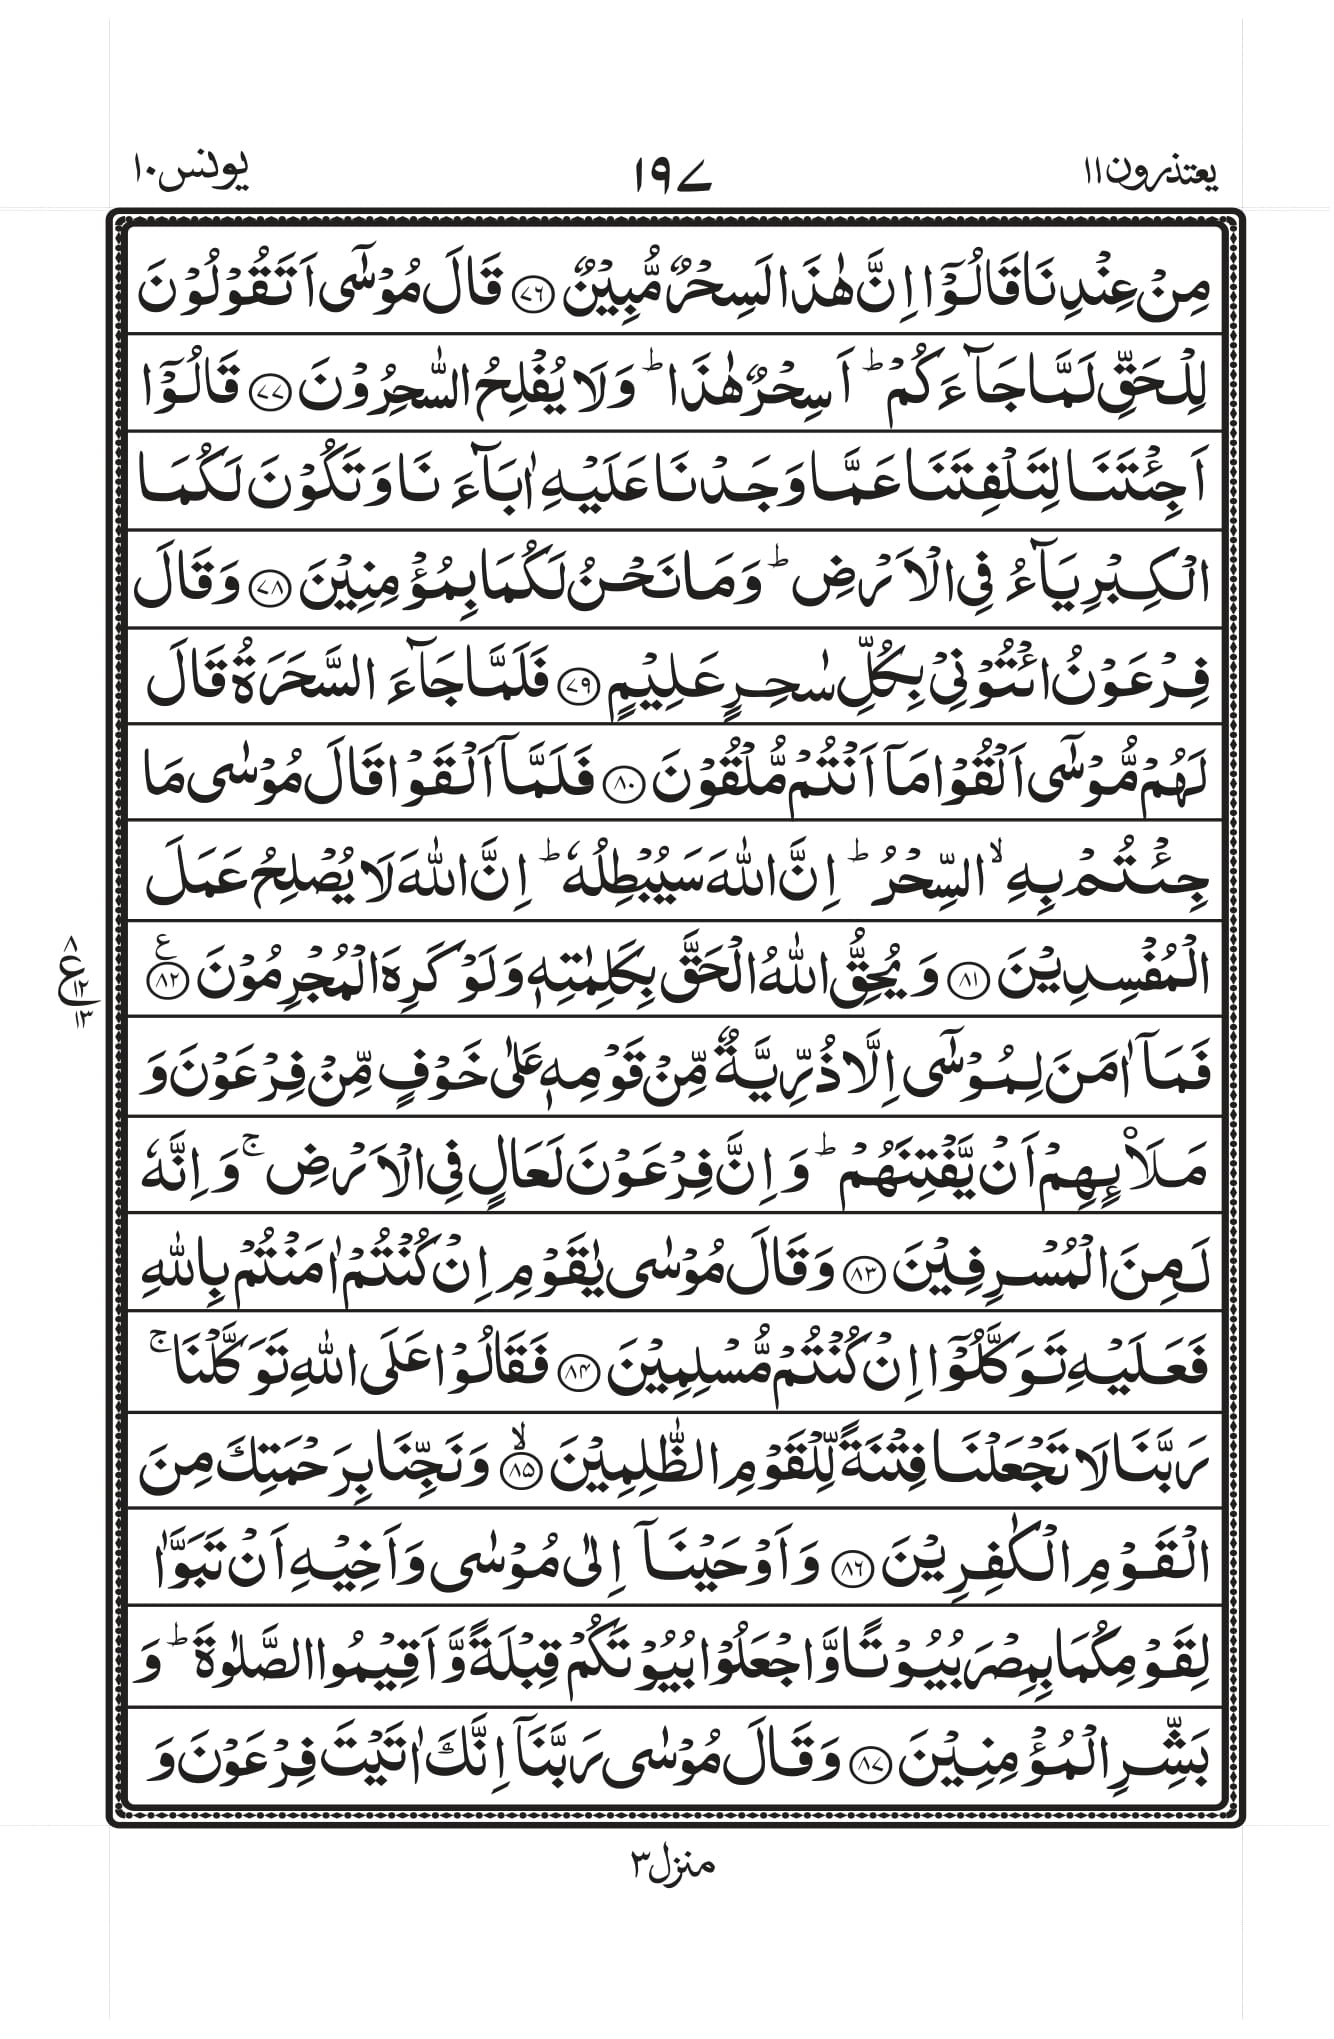 يعتذرون ١١
١٩٧
يونس ١٠
مِنْ عِنْدِنَا قَالُوْۤا اِنَّ هٰذَا لَسِحْرٌ مُّبِيْنٌ ﴿٧٦﴾ قَالَ مُوْسٰۤى اَتَقُوْلُوْنَ
لِلْحَقِّ لَمَّا جَآءَكُمْ ؕ اَسِحْرٌ هٰذَا ؕ وَلَا يُفْلِحُ السّٰحِرُوْنَ ﴿٧٧﴾ قَالُوْۤا
اَجِئْتَنَا لِتَلْفِتَنَا عَمَّا وَجَدْنَا عَلَيْهِ اٰبَآءَنَا وَتَكُوْنَ لَكُمَا
الْكِبْرِيَآءُ فِى الْاَرْضِ ؕ وَمَا نَحْنُ لَكُمَا بِمُؤْمِنِيْنَ ﴿٧٨﴾ وَقَالَ
فِرْعَوْنُ ائْتُوْنِىْ بِكُلِّ سٰحِرٍ عَلِيْمٍ ﴿٧٩﴾ فَلَمَّا جَآءَ السَّحَرَةُ قَالَ
لَهُمْ مُّوْسٰۤى اَلْقُوْا مَاۤ اَنْتُمْ مُّلْقُوْنَ ﴿٨٠﴾ فَلَمَّاۤ اَلْقَوْا قَالَ مُوْسٰى مَا
جِئْتُمْ بِهِ ۙ السِّحْرُ ؕ اِنَّ اللّٰهَ سَيُبْطِلُهٗ ؕ اِنَّ اللّٰهَ لَا يُصْلِحُ عَمَلَ
الْمُفْسِدِيْنَ ﴿٨١﴾ وَيُحِقُّ اللّٰهُ الْحَقَّ بِكَلِمٰتِهٖ وَلَوْ كَرِهَ الْمُجْرِمُوْنَ ﴿٨٢﴾ ع
٨
ع ١٢
١٣
فَمَاۤ اٰمَنَ لِمُوْسٰۤى اِلَّا ذُرِّيَّةٌ مِّنْ قَوْمِهٖ عَلٰى خَوْفٍ مِّنْ فِرْعَوْنَ وَ
مَلَا۠ئِهِمْ اَنْ يَّفْتِنَهُمْ ؕ وَاِنَّ فِرْعَوْنَ لَعَالٍ فِى الْاَرْضِ ۚ وَاِنَّهٗ
لَمِنَ الْمُسْرِفِيْنَ ﴿٨٣﴾ وَقَالَ مُوْسٰى يٰقَوْمِ اِنْ كُنْتُمْ اٰمَنْتُمْ بِاللّٰهِ
فَعَلَيْهِ تَوَكَّلُوْۤا اِنْ كُنْتُمْ مُّسْلِمِيْنَ ﴿٨٤﴾ فَقَالُوْا عَلَى اللّٰهِ تَوَكَّلْنَا ۚ
رَبَّنَا لَا تَجْعَلْنَا فِتْنَةً لِّلْقَوْمِ الظّٰلِمِيْنَ ۙ﴿٨٥﴾ وَنَجِّنَا بِرَحْمَتِكَ مِنَ
الْقَوْمِ الْكٰفِرِيْنَ ﴿٨٦﴾ وَاَوْحَيْنَاۤ اِلٰى مُوْسٰى وَاَخِيْهِ اَنْ تَبَوَّاٰ
لِقَوْمِكُمَا بِمِصْرَ بُيُوْتًا وَّاجْعَلُوْا بُيُوْتَكُمْ قِبْلَةً وَّاَقِيْمُوا الصَّلٰوةَ ؕ وَ
بَشِّرِ الْمُؤْمِنِيْنَ ﴿٨٧﴾ وَقَالَ مُوْسٰى رَبَّنَاۤ اِنَّكَ اٰتَيْتَ فِرْعَوْنَ وَ
منزل ٣